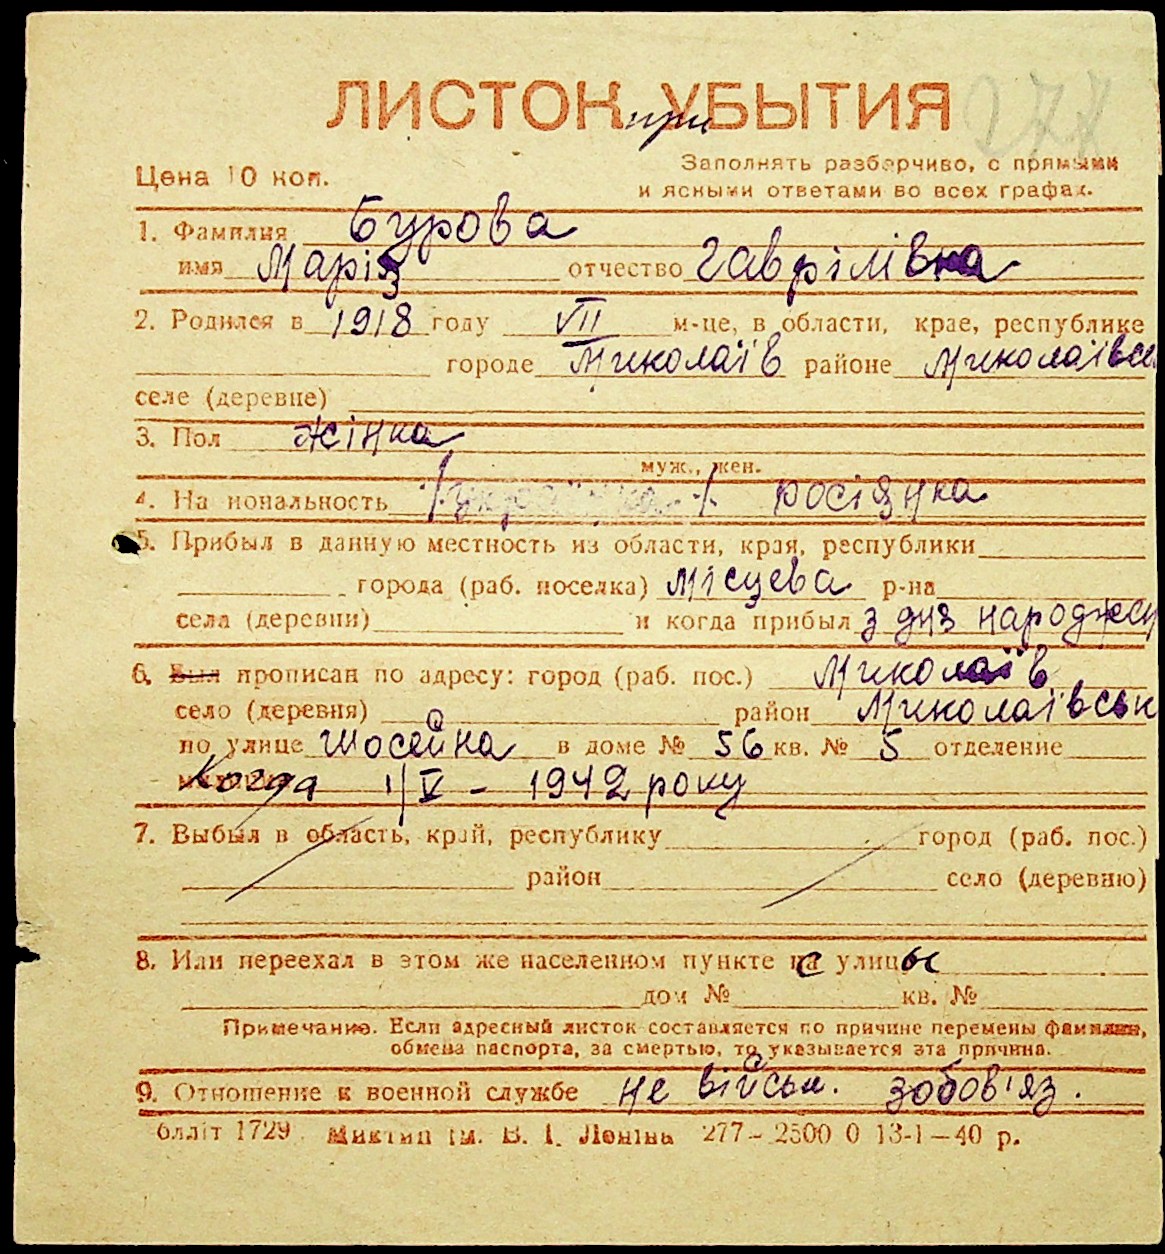 ЛИСТОК при УБЫТИЯ 277
Цена 10 коп.
Заполнять разборчиво, с прямыми
и ясными ответами во всех графах.
1. Фамилия Бурова
имя Марія отчество Гаврілівна
2. Родился в 1918 году VII м-це, в области, крае, республике
городе Миколаїв районе Миколаївськ
селе (деревне)
3. Пол жінка
муж., жен.
4. На иональность українка росіянка
5. Прибыл в данную местность из области, края, республики
города (раб. поселка) Місцева р-на
села (деревни) и когда прибыл з дня народжен
6. Был прописан по адресу: город (раб. пос.) Миколаїв
село (деревня) район Миколаївськ
по улице Шосейна в доме № 56 кв. № 5 отделение
Когда 1/V - 1942 року
7. Выбыл в область, край, республику город (раб. пос.)
район село (деревню)
8. Или переехал в этом же населенном пункте с улицы
дом № кв. №
Примечание. Если адресный листок составляется по причине перемены фамилии,
обмена паспорта, за смертью, то указывается эта причина.
9. Отношение к военной службе не військ. зобов'яз.
блліт 1729. Миктип ім. В. І. Леніна 277-2500 0 13-1-40 р.